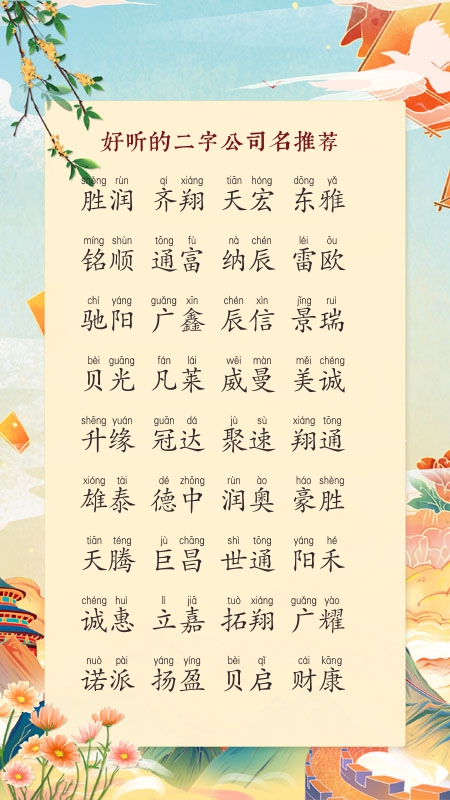 好听的二字公司名推荐
shèng rùn qí xiáng tiān hóng dōng yǎ
胜润 齐翔 天宏 东雅
míng shùn tōng fù nà chén léi ōu
铭顺 通富 纳辰 雷欧
chí yáng guǎng xīn chén xìn jǐng ruì
驰阳 广鑫 辰信 景瑞
bèi guāng fán lái wēi màn měi chéng
贝光 凡莱 威曼 美诚
shēng yuán guān dá jù sù xiáng tōng
升缘 冠达 聚速 翔通
xióng tài dé zhōng rùn ào háo shèng
雄泰 德中 润奥 豪胜
tiān téng jù chāng shì tōng yáng hé
天腾 巨昌 世通 阳禾
chéng huì lì jiā tuò xiáng guǎng yào
诚惠 立嘉 拓翔 广耀
nuò pài yáng yíng bèi qǐ cái kāng
诺派 扬盈 贝启 财康